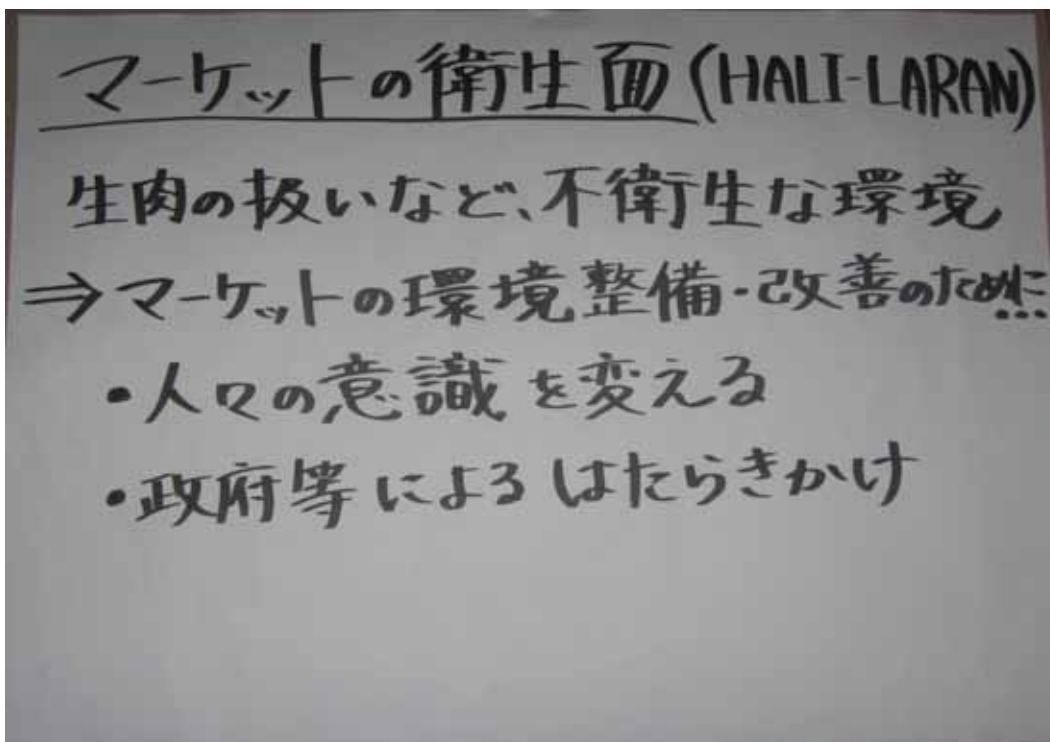 マーケットの衛生面(HALI-LARAN)
生肉の扱いなど、不衛生な環境
⇒マーケットの環境整備・改善のために…
・人々の意識を変える
・政府等によるはたらきかけ